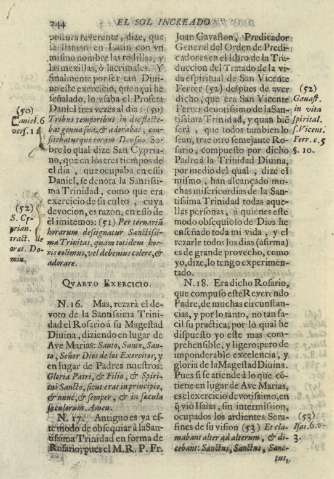 244 EL SOL INCREADO
postura reverente, dize, que
se llaman en Latin con vn
mismo nombre las rodillas, y
las mexillas, ò lacrimales. Y
finalmente por ser tan Divi-
no este exercicio, que aqui he
señalado, lo vsaba el Profeta
Daniel tres vezes al dia: (50)
Tribus temporibus in die flecte-
bat genua sua, & adorabat, con-
fitebaturque coram Deo suo. So-
bre lo qual dize San Cypria-
no, que en los tres tiempos de
el dia, que ocupaba en esso
Daniel, se denota la Santissi-
ma Trinidad, como que era
exercicio de su culto, cuya
devocion, es razon, en esso de
el imitemos: (51) Per ternariũ
horarum designatur Sanctissi-
ma Trinitas, quam totidem ho-
ris colimus, vel debemus colere, &
adorare.
QUARTO EXERCICIO.
N. 16. Mas, rezarà el de-
voto de la Santissima Trini-
dad el Rosario à su Magestad
Divina, diziendo en lugar de
Ave Marias: Santo, Santo, San-
to, Señor Dios de los Exercitos, y
en lugar de Padres nuestros:
Gloria Patri, & Filio, & Spiri-
tui Sancto, sicut erat in principio,
& nunc, & semper, & in sæcula
sæculorum. Amen.
N. 17. Antiguo es ya es-
te modo de obsequiar à la San-
tissima Trinidad en forma de
Rosario, pues el M. R. P. Fr.
(50)
Daniel. 6
vers. 1
(52)
S. Cy-
prian.
tract. de
orat. Do-
min.
Joan Gavaston, Predicador
General del Orden de Predi-
cadores en el libro de la Tra-
duccion del Tratado de la vi-
da espiritual de San Vicente
Ferrer (52) despues de aver
dicho, que era San Vicente
Ferrer devotissimo de la San-
tissima Trinidad, y quan biē
serà, que todos tambien lo
sean, trae otro semejante Ro-
sario, compuesto por dicho
Padre à la Trinidad Divina,
por medio del qual, dize el
mismo, han alcançado mu-
chas misericordias de la San-
tissima Trinidad todas aque-
llas personas, à quienes este
modo obsequioso de Dios he
enseñado toda mi vida, y el
rezarle todos los dias (afirma)
es de grande provecho, como
yo, dize, lo tengo experimen-
tado.
N. 18. Era dicho Rosario,
que compuso este Reverendo
Padre, de muchas circunstan-
cias, y por lo tanto, no tan fa-
cil su practica, por lo qual he
dispuesto yo este mas com-
prehensible, y ligero, pero de
imponderable excelencia, y
gloria de la Magestad Divina.
Pues si se atiende à lo que cõ-
tiene en lugar de Ave Marias,
es el exercicio devotissimo, en
q̃ viò Isaias, sin intermission,
ocupados los ardientes Sera-
fines de su vision (53) Et cla-
mabant alter ad alterum, & di-
cebant: Sanctus, Sanctus, Sanc-
tus,
(52)
Gavast.
in vita
spirital.
S. Vicent.
Ferr. c. 5
§. 10.
(53)
3.